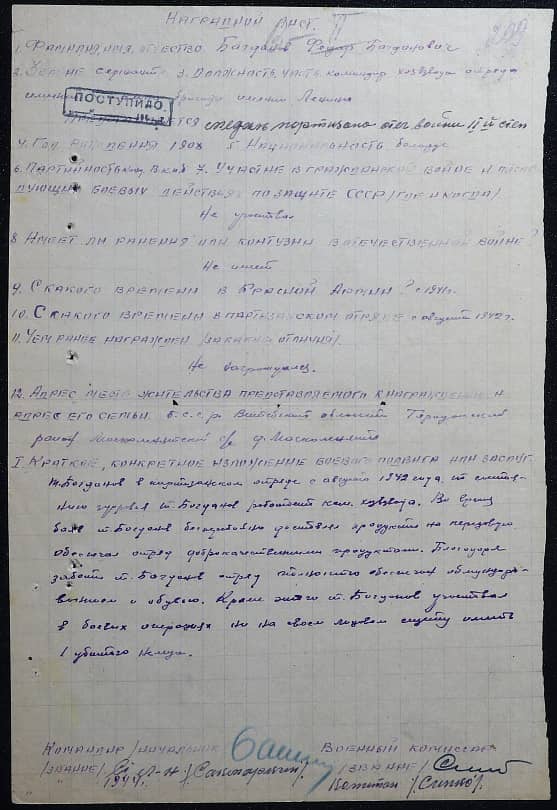 НАГРАДНОЙ ЛИСТ. II
1. Фамилия, имя, отчество Богданов Федор Богданович
2. Звание Сержант 3. Должность, часть командир хозвзвода отряда
бригада имени Ленина
ПОСТУПИЛО
медаль партизана отеч войны II степ
4. Год рождения 1908 5 Национальность белорус
6. Партийность 7. Участие в гражданской войне и после
дующих боевых действиях по защите СССР (где и когда)
Не участвов
8. Имеет ли ранения или контузии в отечественной войне?
Не имеет
9. С какого времени в Красной Армии? с 1941г.
10. С какого времени в партизанском отряде с августа 1942г.
11. Чем ранее награжден (за какие отличия).
Не награждался.
12. Адрес места жительства представляемого к награждению и
адрес его семьи. б.с.с.р. Витебская область Городокский
район с/с д.
I. Краткое, конкретное изложение боевого подвига или заслуг.
т. Богданов в партизанском отряде с августа 1942 года, по состоя-
нию здоровья т. Богданов работает ком. хозвзвода. Во время
боя т. Богданов бесперебойно доставлял продукты на передовую
обеспечил отряд доброкачественными продуктами. Благодаря
заботе т. Богданов отряд полностью обеспечен обмундиро-
ванием и обувью. Кроме этого т. Богданов участвовал
в боевых операциях но на своем лицевом счету имеет
1 убитого немца.
Командир /начальник Военный комиссар
/звание/ /звание/
Капитан